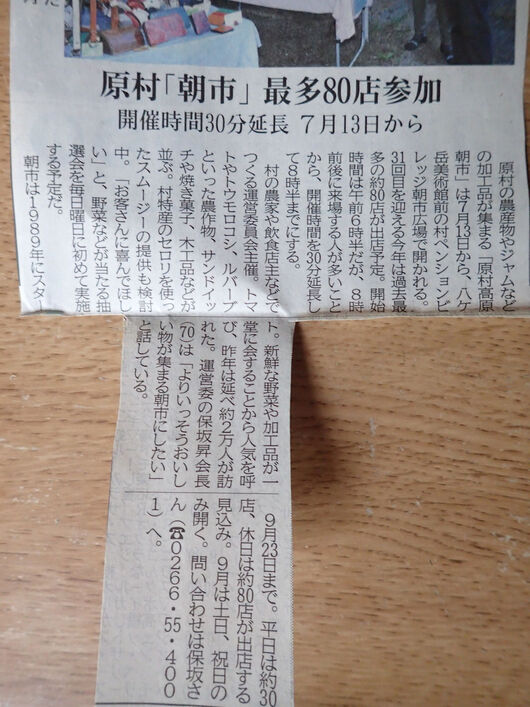 原村「朝市」最多80店参加
開催時間30分延長 7月13日から
原村の農産物やジャムなど
の加工品が集まる「原村高原
朝市」は7月13日から、八ケ
岳美術館前の村ペンションビ
レッジ朝市広場で開かれる。
31回目を迎える今年は過去最
多の約80店が出店予定。開始
時間は午前6時半だが、8時
前後に来場する人が多いこと
から、開催時間を30分延長し
て8時半までにする。
村の農家や飲食店主などで
つくる運営委員会主催。トマ
トやトウモロコシ、ルバーブ
といった農作物、サンドイッ
チや焼き菓子、木工品などが
並ぶ。村特産のセロリを使っ
たスムージーの提供も検討
中。「お客さんに喜んでほし
い」と、野菜などが当たる抽
選会を毎日曜日に初めて実施
する予定だ。
朝市は1989年にスター
ト。新鮮な野菜や加工品が一
堂に会することから人気を呼
び、昨年は延べ約2万人が訪
れた。運営委の保坂昇会長
(70)は「よりいっそうおいし
い物が集まる朝市にしたい」
と話している。
9月23日まで。平日は約30
店、休日は約80店が出店する
見込み。9月は土日、祝日の
み開く。問い合わせは保坂さ
ん(☎0266・55・400
1)へ。